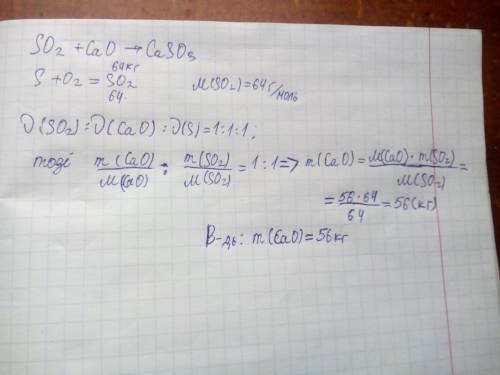 SO₂ + CaO → CaSO₃
64кг
S + O₂ = SO₂ M(SO₂) = 64 г/моль
64
ν(SO₂) : ν(CaO) : ν(S) = 1:1:1;
тоді m(CaO)/M(CaO) : m(SO₂)/M(SO₂) = 1:1 => m(CaO) = M(CaO)·m(SO₂)/M(SO₂) =
= 56·64/64 = 56(кг)
В-дь: m(CaO) = 56кг